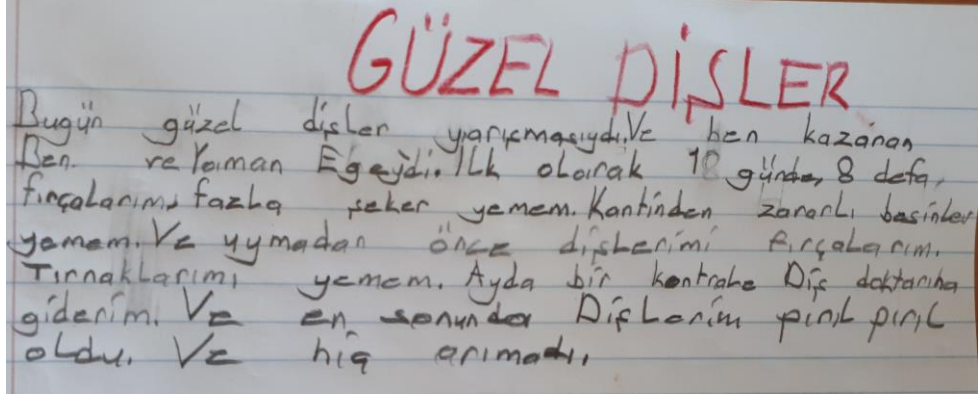 GÜZEL DİŞLER
Bugün güzel dişler yarışmasıydı. Ve ben kazanan
Ben. ve Yaman Egeydi. İlk olarak 18 günde, 8 defa,
fırçalarım, fazla şeker yemem. Kantinden zararlı besinler
yemem. Ve uymadan önce dişlerimi fırçalarım.
Tırnaklarımı yemem. Ayda bir kontrole Diş doktoruna
giderim. Ve en sonunda Dişlerim pırıl pırıl
oldu. Ve hiç arımadı.